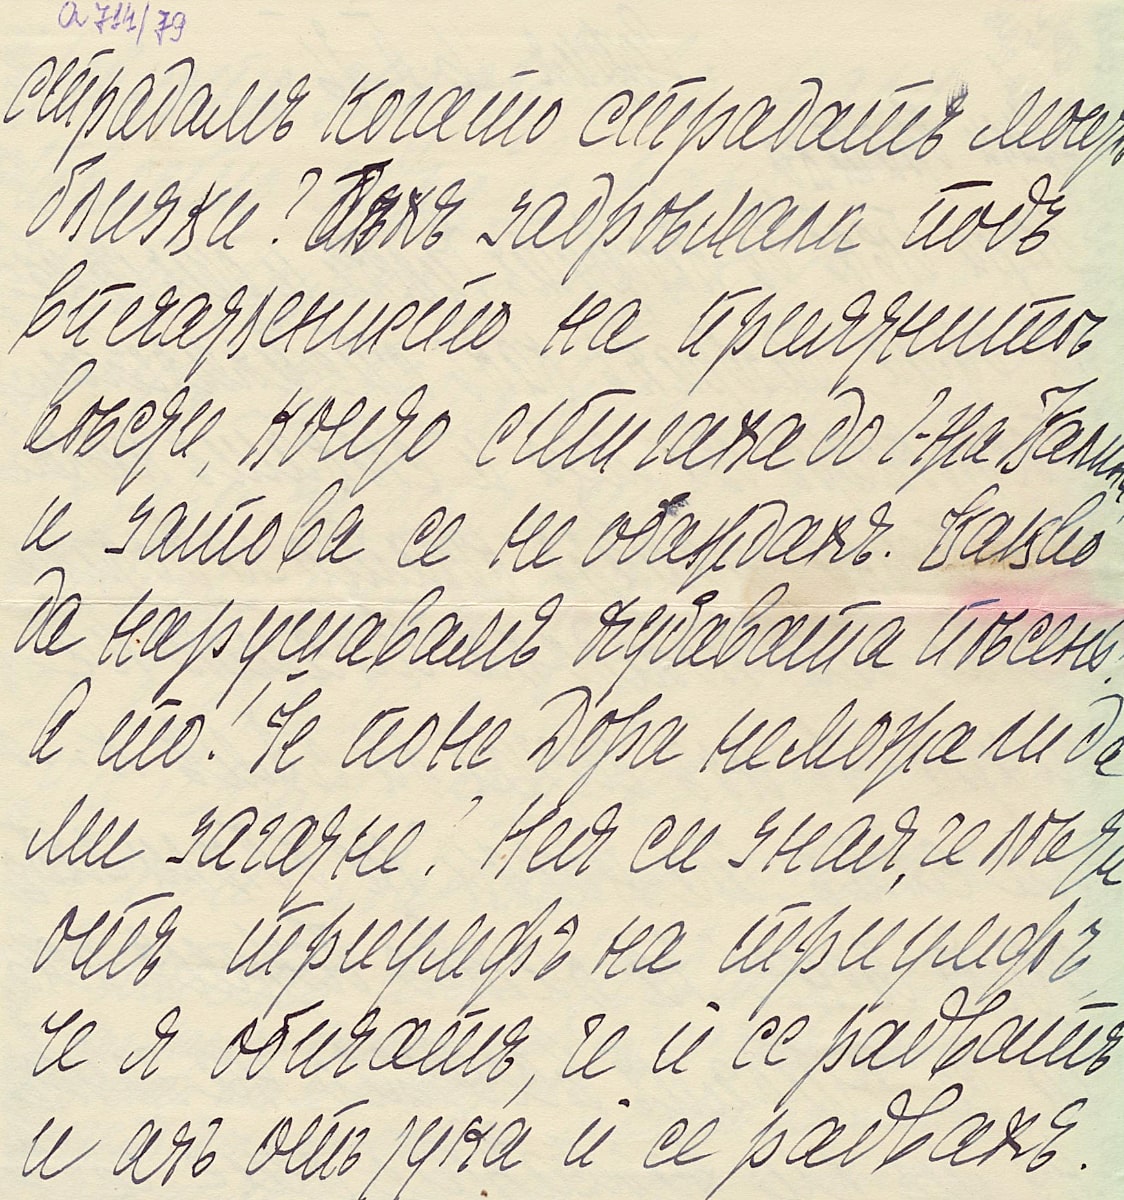 а 714/79
страдамъ когато страдатъ моитѣ
близки? Бѣхъ задрѣмала подъ
впечатлението на приятнитѣ
вѣсти, които стигаха до г-жа
и затова се не обаждахъ. Какво
да нарушавамъ хубавата пѣсень!
А то! Че поне Дора неможа ли да
ми загатне? Ней си зная, че лети
отъ триумфъ на триумфъ,
че я обичатъ, че ѝ се радватъ
и азъ отъ тука ѝ се радвахъ.